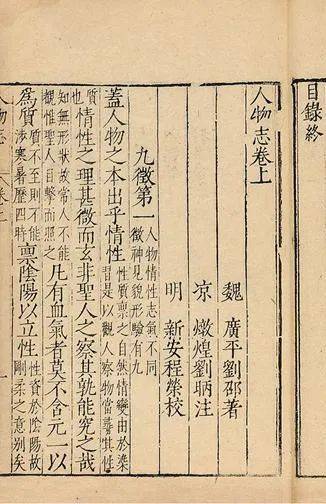 目錄終
人物志卷上
魏 廣平劉邵著
凉 燉煌劉昞注
明 新安程榮校
九徵第一 人物情性志氣不同徵神見貌形驗有九
蓋人物之本出乎情性 性質禀之自然情變由於染習是以觀人察物當尋其性
質也 情性之理甚微而玄非聖人之察其孰能究之哉
知無形狀故常人不能觀惟聖人目擊而照之 凡有血氣者莫不含元一以
爲質 質不至則不能涉寒暑歷四時 禀陰陽以立性 性資於陰陽故剛柔之意别矣